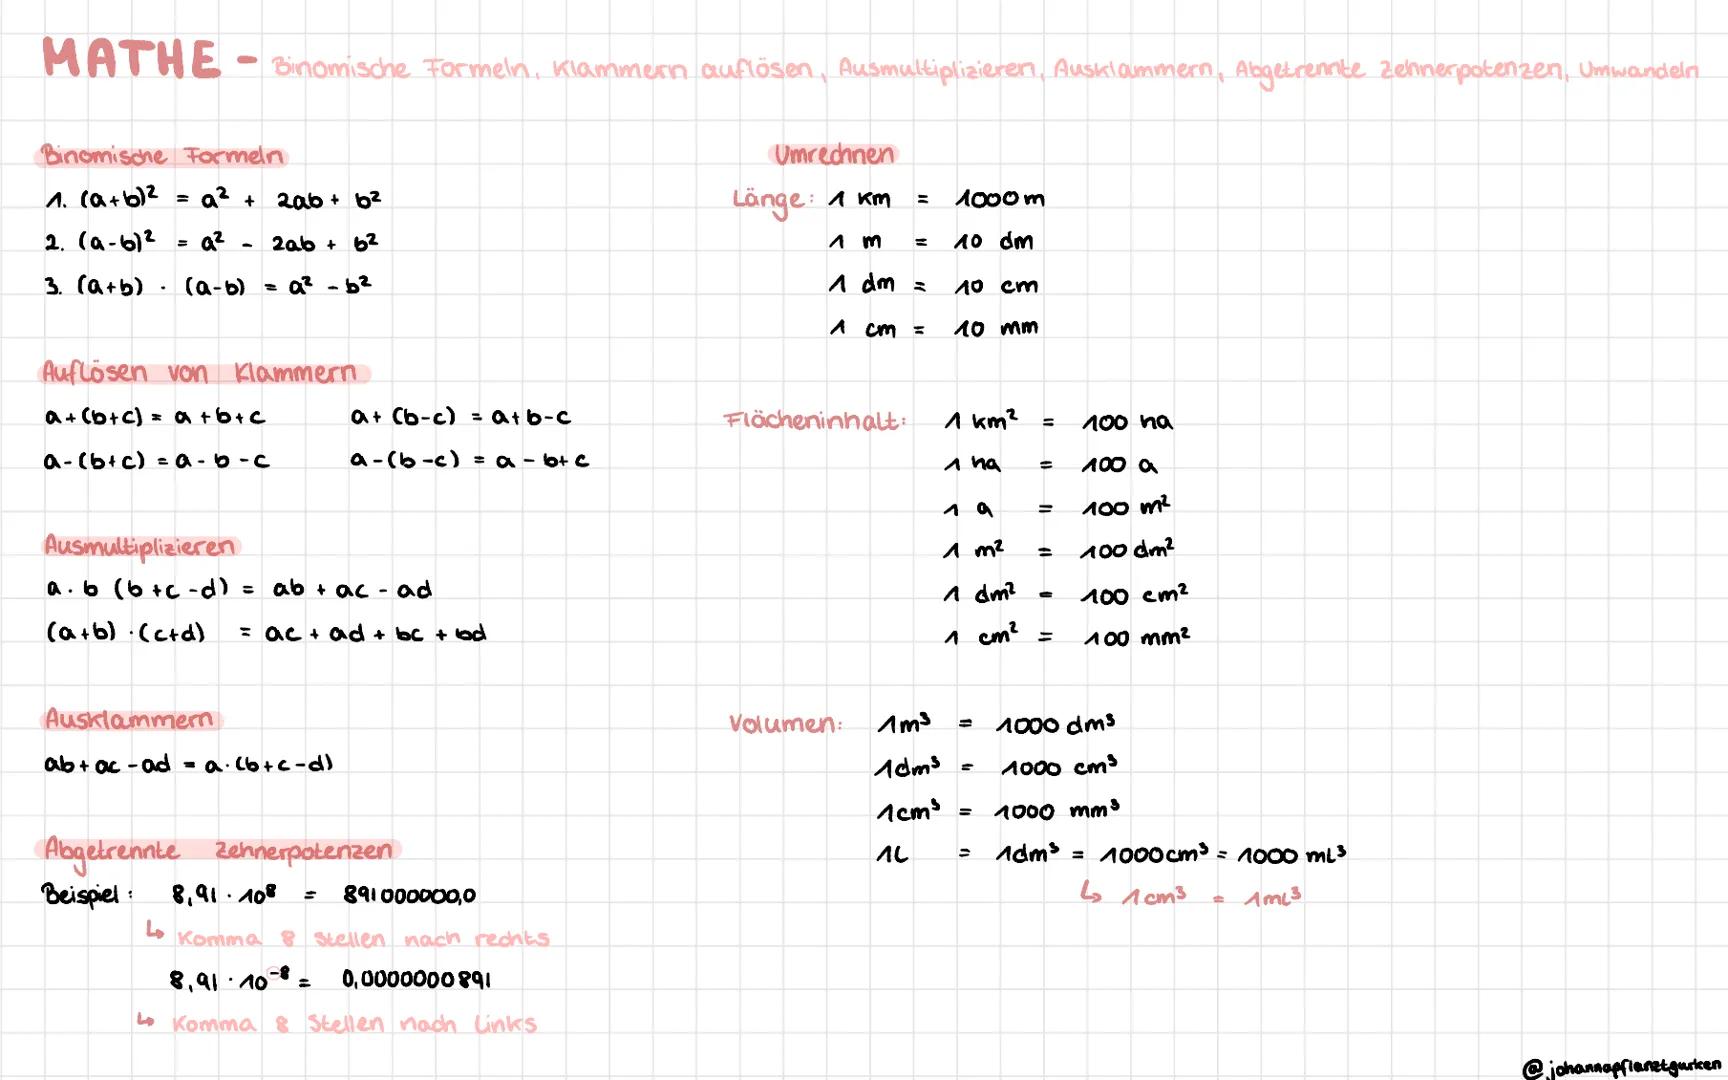 MATHE - Binomische Formeln, Klammern auflösen, Ausmultiplizieren, Ausklammern, Abgetrennte Zehnerpotenzen, Umwandeln
Binomische Formeln
1. (a+b)² = a² + 2ab + b²
2. (a-b)² = a² - 2ab + b²
3. (a+b) · (a-b) = a² - b²
Auflösen von Klammern
a+(b+c) = a+b+c a+(b-c) = a+b-c
a-(b+c) = a-b-c a-(b-c) = a-b+c
Ausmultiplizieren
a·b (b+c-d) = ab + ac - ad
(a+b)·(c+d) = ac + ad + bc + bd
Ausklammern
ab+ac-ad = a·(b+c-d)
Abgetrennte Zehnerpotenzen
Beispiel: 8,91 · 10⁸ = 891000000,0
↳ Komma 8 Stellen nach rechts
8,91 · 10⁻⁸ = 0,0000000891
↳ Komma 8 Stellen nach Links
Umrechnen
Länge: 1 km = 1000 m
1 m = 10 dm
1 dm = 10 cm
1 cm = 10 mm
Flächeninhalt: 1 km² = 100 ha
1 ha = 100 a
1 a = 100 m²
1 m² = 100 dm²
1 dm² = 100 cm²
1 cm² = 100 mm²
Volumen: 1m³ = 1000 dm³
1dm³ = 1000 cm³
1cm³ = 1000 mm³
1L = 1dm³ = 1000cm³ = 1000 mL³
↳ 1cm³ = 1mL³
@johannapflanztgurken